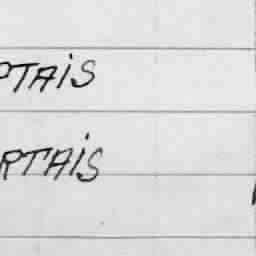 PTAiS
RTAiS